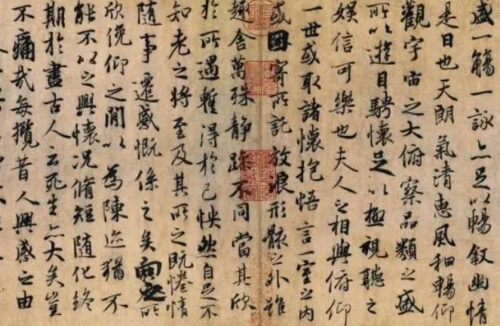 盛一觴一詠亦足以暢叙幽情
是日也天朗氣清惠風和暢仰
觀宇宙之大俯察品類之盛
所以遊目騁懷足以極視聽之
娛信可樂也夫人之相與俯仰
一世或取諸懷抱悟言一室之內
或因寄所託放浪形骸之外雖
趣舍萬殊靜躁不同當其欣
於所遇暫得於己怏然自足不
知老之將至及其所之既惓情
隨事遷感慨係之矣向之所
欣俛仰之間以為陳迹猶不
能不以之興懷況脩短隨化終
期於盡古人云死生亦大矣豈
不痛哉每攬昔人興感之由